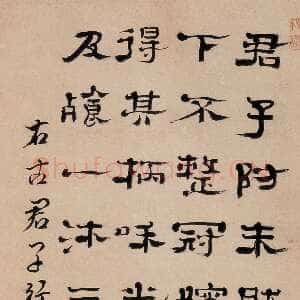 君子防未然
下不整冠嫂
得其柄咊光
及一沐三
右古君子行